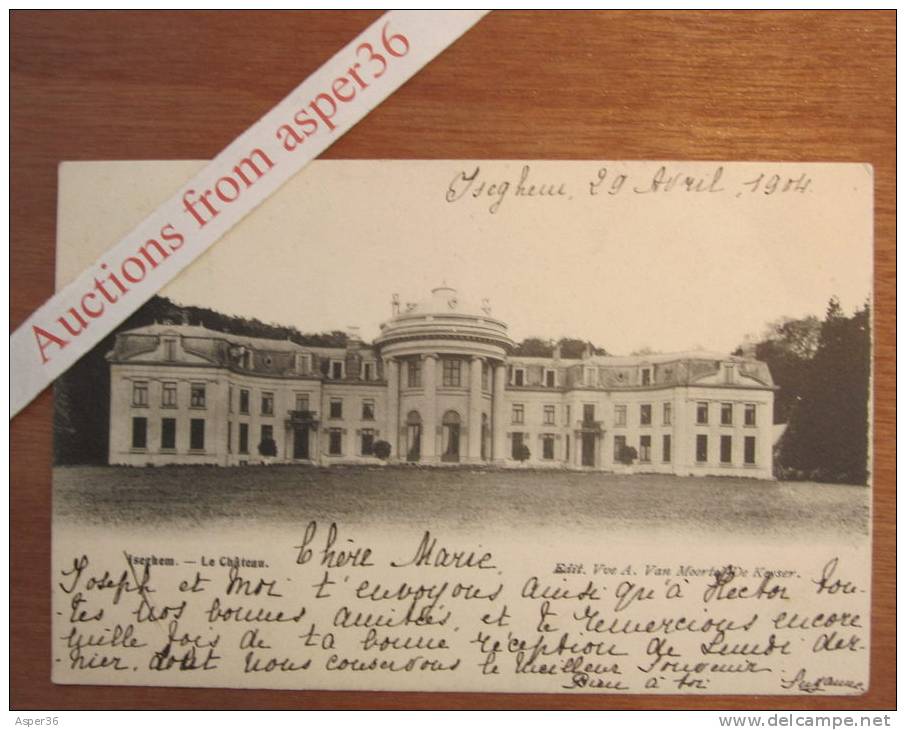 Auctions from asper36
Iseghem, 29 Avril, 1904.
Iseghem. — Le Château.
Chère Marie
Edit. Vve A. Van Moortel-De Keyser.
Joseph et moi t'envoyons ainsi qu'à Hector tou-
-tes nos bonnes amitiés, et te remercions encore
mille fois de ta bonne réception de Lundi der-
-nier, dont nous conservons le meilleur souvenir.
Bien à toi Suzanne
Asper36
http://www.delcampe.net